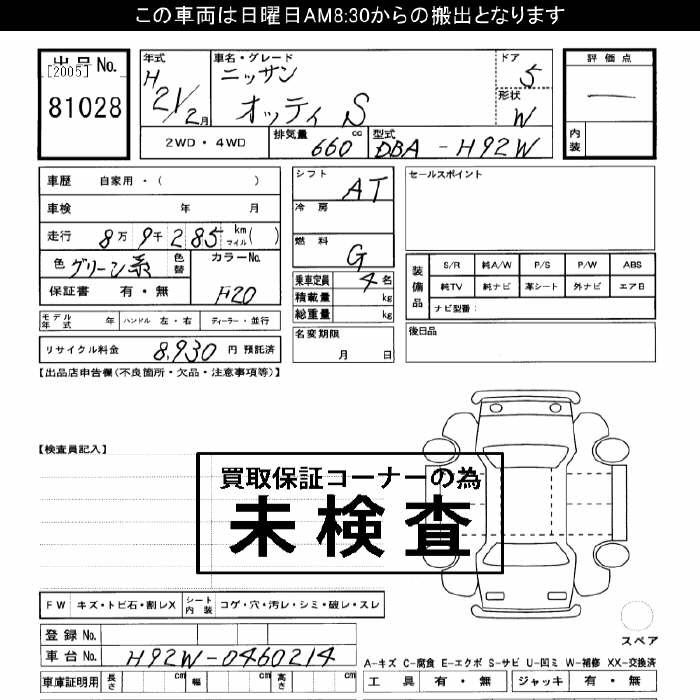 この車両は日曜日AM8:30からの搬出となります
出品No.
[2005]
81028
年式
H
21/2月
車名・グレード
ニッサン
オッティ S
ドア
5
形状
W
評価点
一
内装
2WD・4WD
排気量
660cc
型式
DBA-H92W
車歴 自家用・( )
車検 年 月
走行 8万9千285 km マイル( )
色 グリーン系
色替
カラーNo.
F20
保証書 有・無
モデル年式 年 ハンドル 左・右 ディーラー・並行
リサイクル料金 8,930 円 預託済
シフト
AT
冷房
燃料
G
乗車定員 4名
積載量 kg
総重量 kg
名変期限
月 日
セールスポイント
装備品
S/R 純A/W P/S P/W ABS
純TV 純ナビ 革シート 外ナビ エアB
ナビ型番:
後日品
【出品店申告欄(不良箇所・欠品・注意事項等)】
【検査員記入】
買取保証コーナーの為
未検査
FW キズ・トビ石・割レX シート内装 コゲ・穴・汚レ・シミ・破レ・スレ
スペア
登録No.
車台No. H92W-0460214
車庫証明用 長さ cm 幅 cm 高さ cm
A-キズ C-腐食 E-エクボ S-サビ U-凹ミ W-補修 XX-交換済
工具 有・無 ジャッキ 有・無